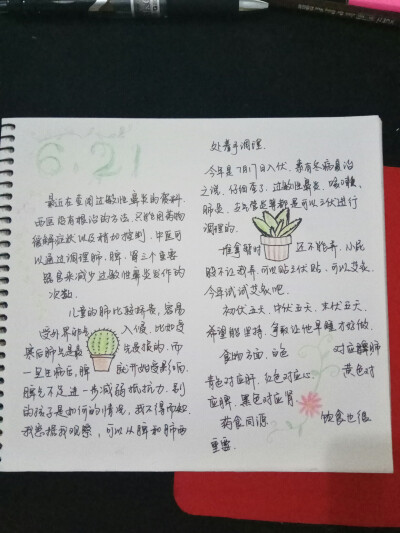 6.21
最近在查阅过敏性鼻炎的资料,
西医没有根治的方法,只能用药物
缓解症状以及稍加控制,中医可
以通过调理肺、脾、肾三个主要
器官来减少过敏性鼻炎发作的
次数。
儿童的肺比较娇贵,容易
受外界邪气入侵,比如受
寒后肺先是最先受损的,而
一旦生病后,脾也开始受影响,
脾气不足进一步减弱抵抗力。别
的孩子是如何的情况,我不得而知,
我想据我观察,可以从脾和肺两
处着手调理。
今年是7月17日入伏,素有冬病夏治
之说,仔细查了,过敏性鼻炎、咳嗽、
肺炎、支气管炎等都是可以三伏进行
调理的。
推拿暂时还不能弄,小屁
股不让我弄,可以贴三伏贴,可以艾灸,
今年试试艾灸吧。
初伏三天,中伏三天,末伏三天,
希望能坚持,争取让他早睡才好做。
食物方面,白色对应肺
青色对应肝,红色对应心,黄色对
应脾,黑色对应肾。
药食同源,饮食也很
重要。